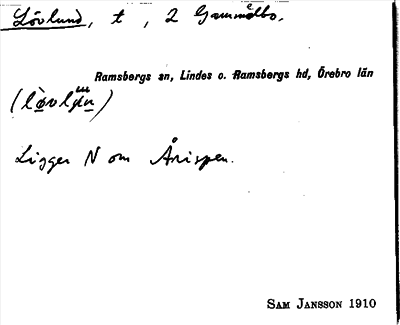 Lövlund, t , 2 Gammelbo.
Ramsbergs sn, Lindes o. Ramsbergs hd, Örebro län
Ligger N om Årispen.
SAM JANSSON 1910